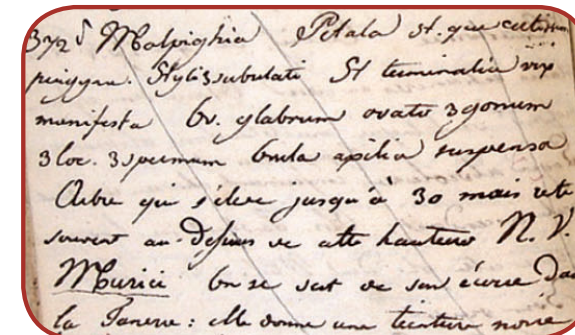 372 Malpighia Petala 5. que
Styli 3 subulati St terminalia vix
manifesta Ov. glabrum ovato 3gonum
3 loc. 3 spermum Ovula apilia suspensa
Arbre qui s'éleve jusqu'à 30 mais
souvent au-dessus de cette hauteur N. V.
Murici On se sert de son écorce da
la Tanerie: elle donne une teinture noire